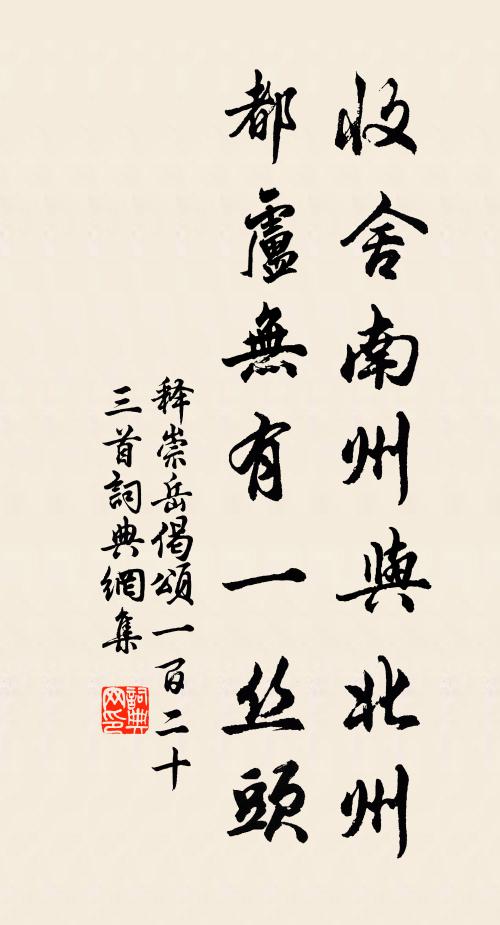 收舍南州與北州
都盧無有一丝頭
释崇岳偈頌一百二十
三首詞典網集
詞典
网印